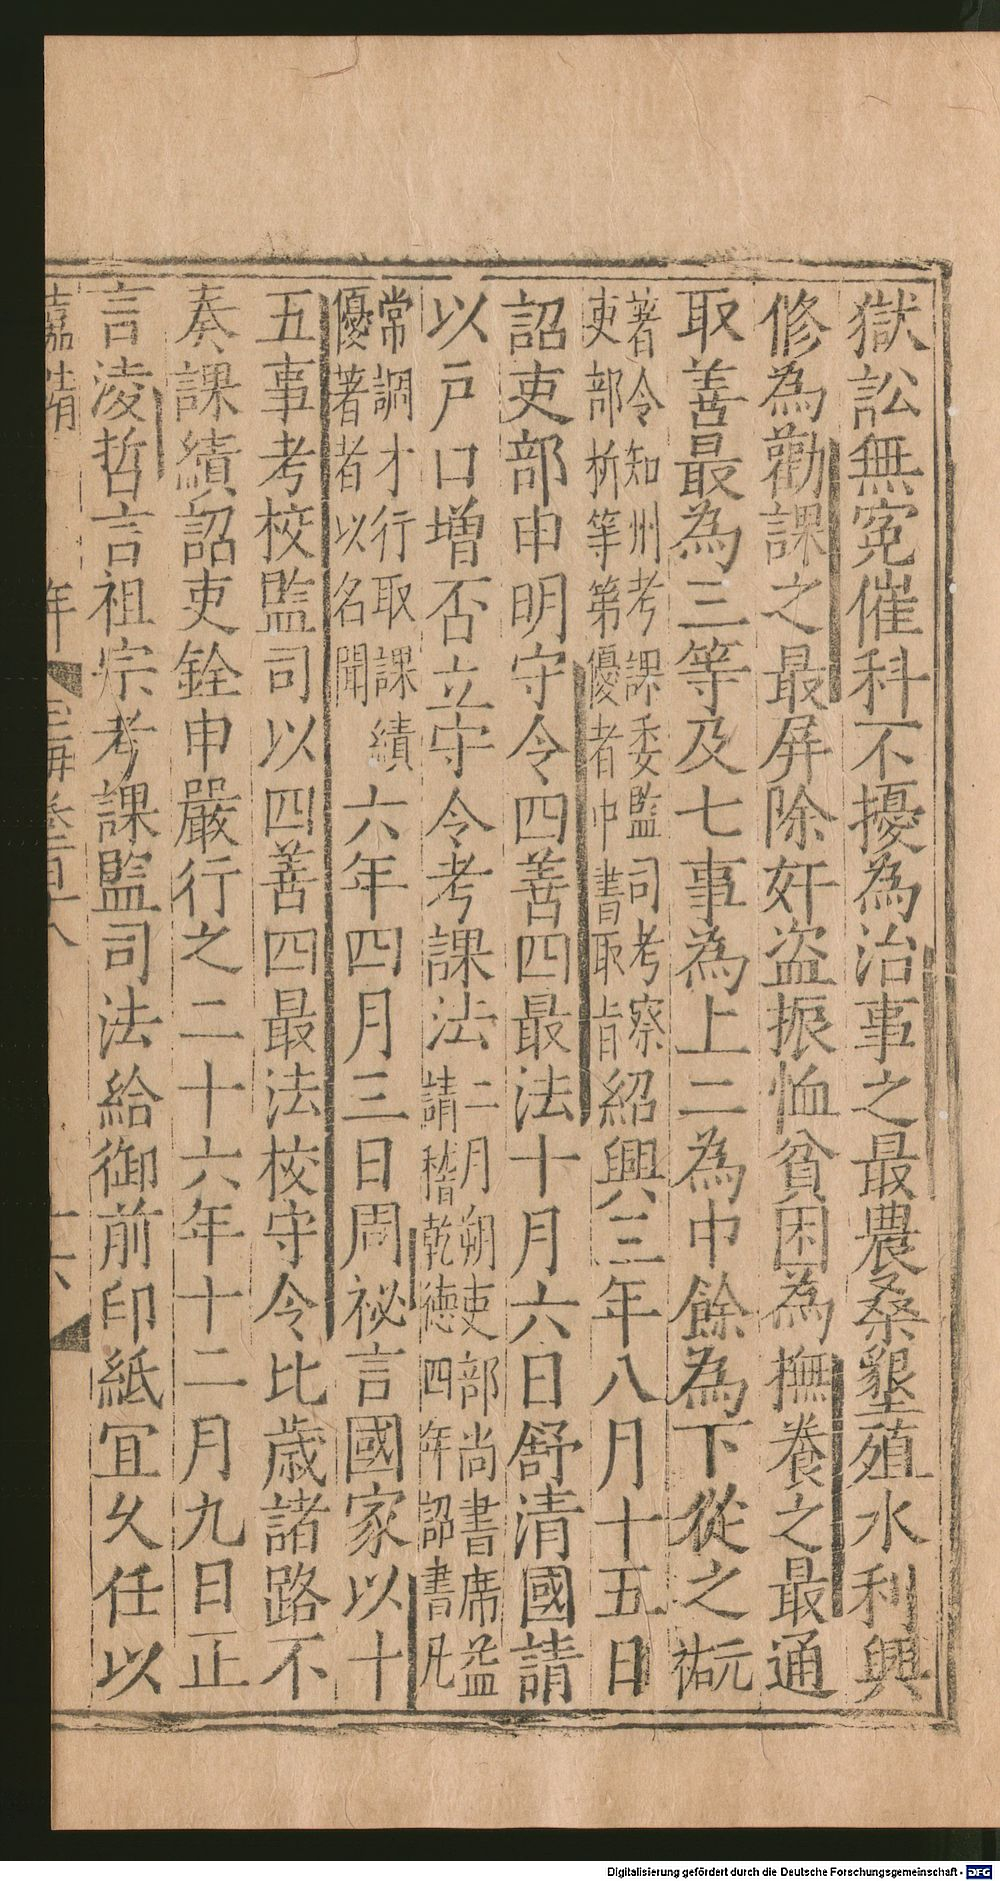 獄訟無寃催科不擾為治事之最農桑墾殖水利興
修為勸課之最屏除奸盗振恤貧困為撫養之最通
取善最為三等及七事為上二為中餘為下從之元祐
著令知州考課委監司考察
吏部析等第優者中書取旨
紹興三年八月十五日
詔吏部申明守令四善四最法十月六日舒清國請
以户口增否立守令考課法
二月朔吏部尚書席益
請稽乾德四年詔書凡
常調才行取課績
優著者以名聞
六年四月三日周祕言國家以十
五事考校監司以四善四最法校守令比歳諸路不
奏課績詔吏銓申嚴行之二十六年十二月九日正
言淩哲言祖宗考課監司法給御前印紙宜久任以
嘉靖 年
十六
Digitalisierung gefördert durch die Deutsche Forschungsgemeinschaft - DFG